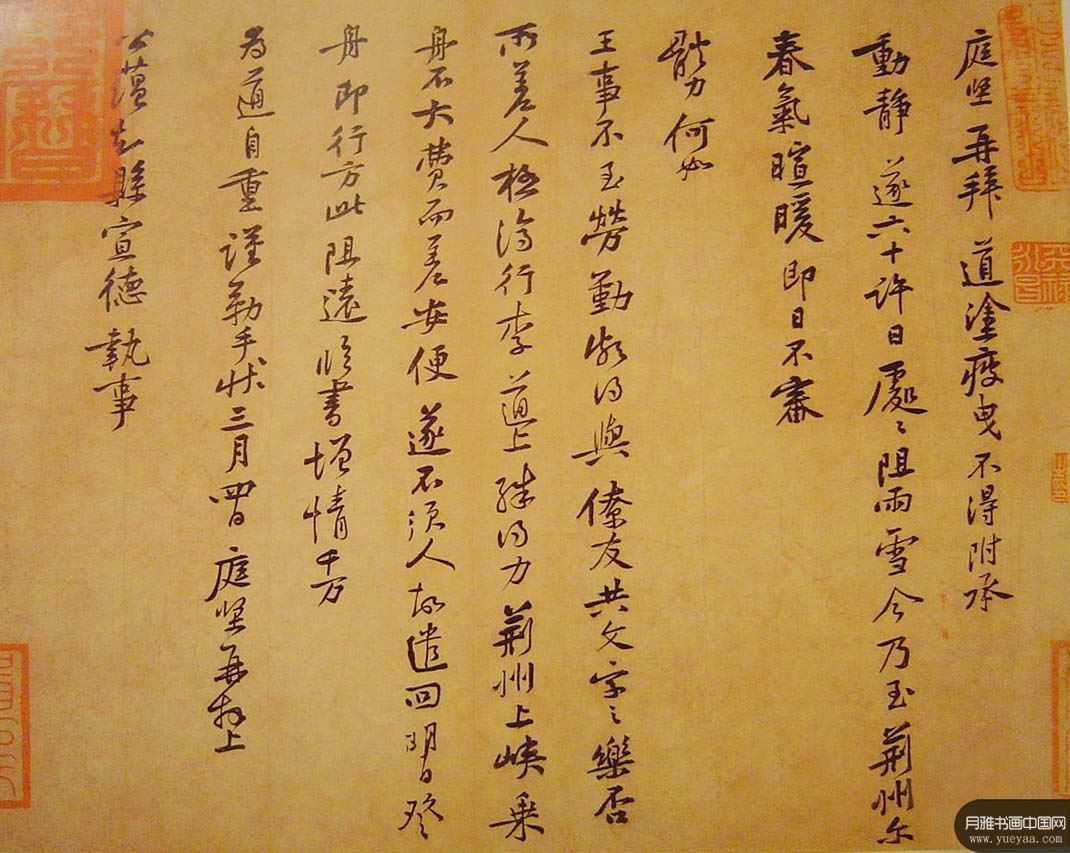 庭堅再拜 道塗疲曳 不得附承
動靜 遂六十許日 處〻阻雨雪 今乃至荊州尔
春氣暄暖 即日不審
體力何如
王事不至勞勤 頗得與僚友共文字之樂否
所差人極濟行李 道上殊得力 荊州上峽乘
舟不大費而差安便 遂不須人 故遣回 明日發
舟即行 方此阻遠 臨書增情 千万
為道自重 謹勒手狀 三月四日 庭堅再拜上
公蘊知縣宣德執事
月雅书画中国网
www.yueyaa.com